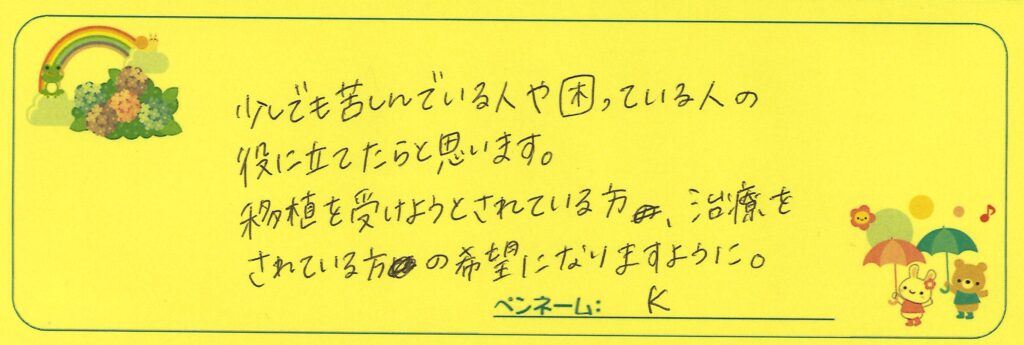 少しでも苦しんでいる人や困っている人の
役に立てたらと思います。
移植を受けようとされている方、治療を
されている方の希望になりますように。
ペンネーム: K